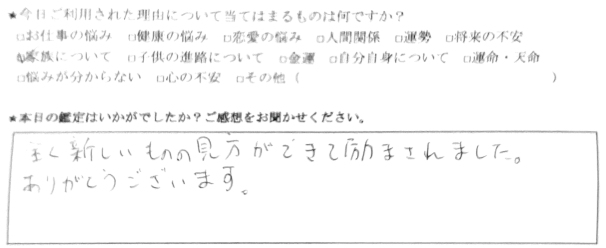 ★今日ご利用された理由について当てはまるものは何ですか？
□お仕事の悩み □健康の悩み □恋愛の悩み □人間関係 □運勢 □将来の不安
☑家族について □子供の進路について □金運 □自分自身について □運命・天命
□悩みが分からない □心の不安 □その他（ ）
★本日の鑑定はいかがでしたか？ご感想をお聞かせください。
全く新しいものの見方ができて励まされました。
ありがとうございます。